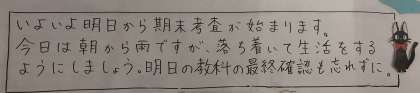 いよいよ明日から期末考査が始まります。
今日は朝から雨ですが、落ち着いて生活をする
ようにしましょう。明日の教科の最終確認も忘れずに。